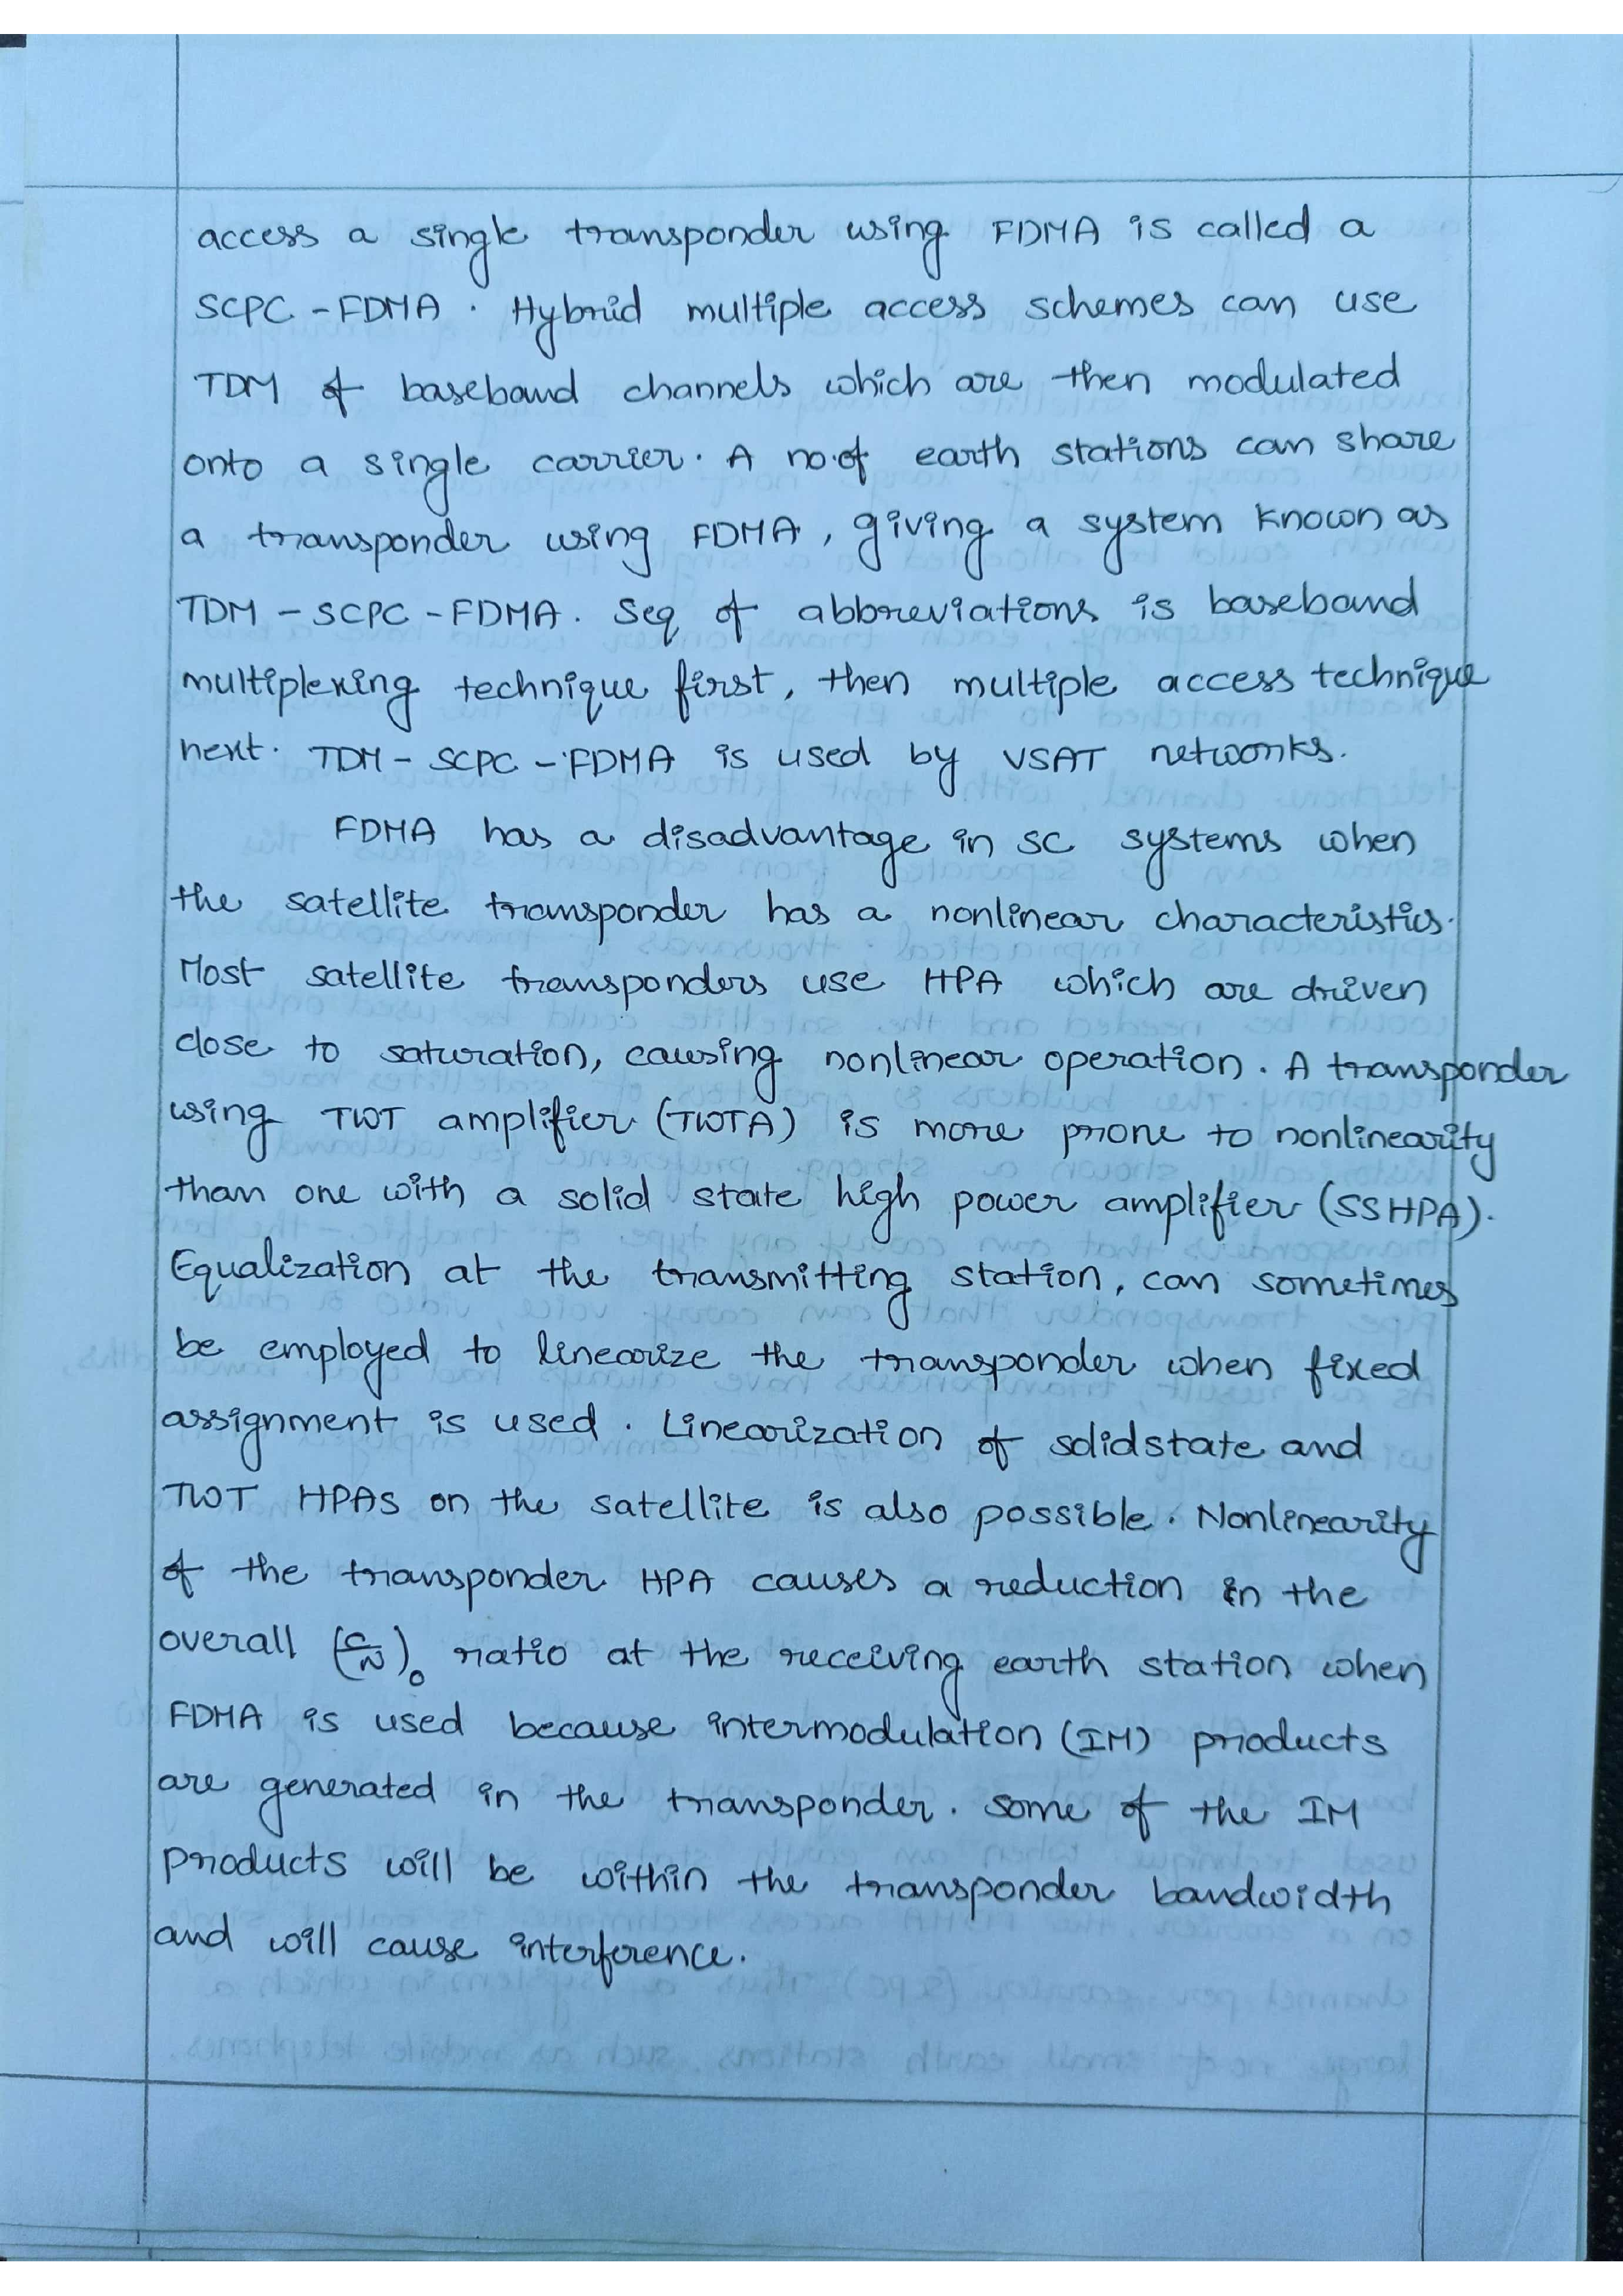 access a single transponder using FDMA is called a
SCPC - FDMA . Hybrid multiple access schemes can use
TDM of baseband channels which are then modulated
onto a single carrier. A no.of earth stations can share
a transponder using FDMA , giving a system known as
TDM - SCPC - FDMA. Seq of abbreviations is baseband
multiplexing technique first, then multiple access technique
next. TDM - SCPC - FDMA is used by VSAT networks.
FDMA has a disadvantage in SC systems when
the satellite transponder has a nonlinear characteristics.
Most satellite transponders use HPA which are driven
close to saturation, causing nonlinear operation. A transponder
using TWT amplifier (TWTA) is more prone to nonlinearity
than one with a solid state high power amplifier (SSHPA).
Equalization at the transmitting station, can sometimes
be employed to linearize the transponder when fixed
assignment is used . Linearization of solidstate and
TWT HPAs on the satellite is also possible. Nonlinearity
of the transponder HPA causes a reduction in the
overall (C/N)₀ ratio at the receiving earth station when
FDMA is used because intermodulation (IM) products
are generated in the transponder. some of the IM
products will be within the transponder bandwidth
and will cause interference.